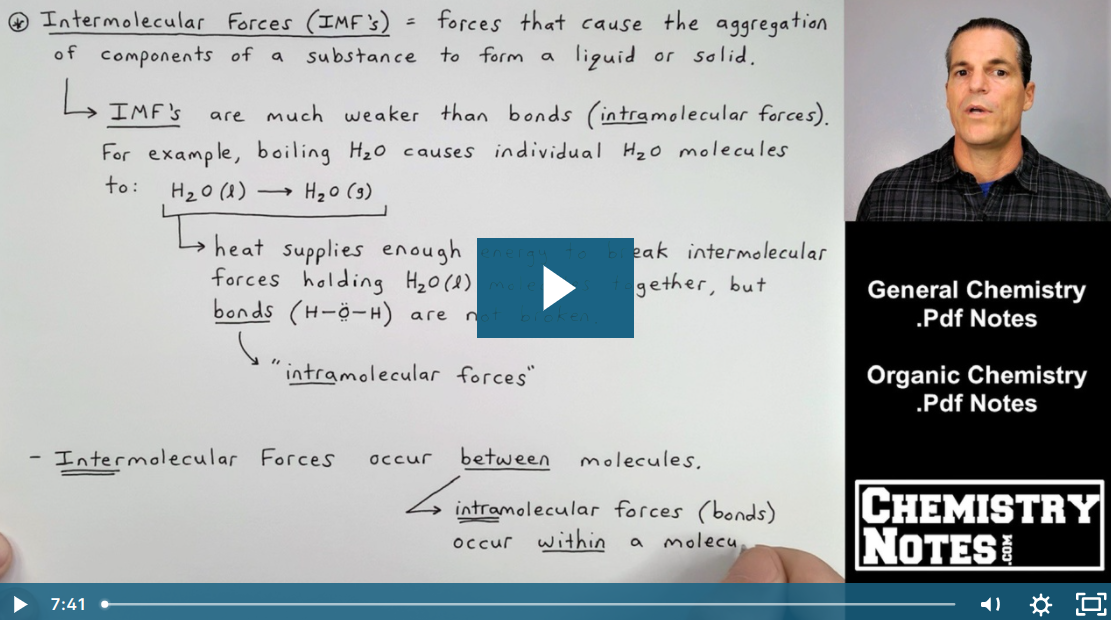 Intermolecular Forces (IMF's) = forces that cause the aggregation
of components of a substance to form a liquid or solid.
IMF's are much weaker than bonds (intramolecular forces).
For example, boiling H₂O causes individual H₂O molecules
to: H₂O (l) → H₂O (g)
heat supplies enough energy to break intermolecular
forces holding H₂O (l) molecules together, but
bonds (H–Ö–H) are not broken.
"intramolecular forces"
- Intermolecular Forces occur between molecules.
intramolecular forces (bonds)
occur within a molecu
General Chemistry
.Pdf Notes
Organic Chemistry
.Pdf Notes
CHEMISTRY
NOTES.COM
7:41